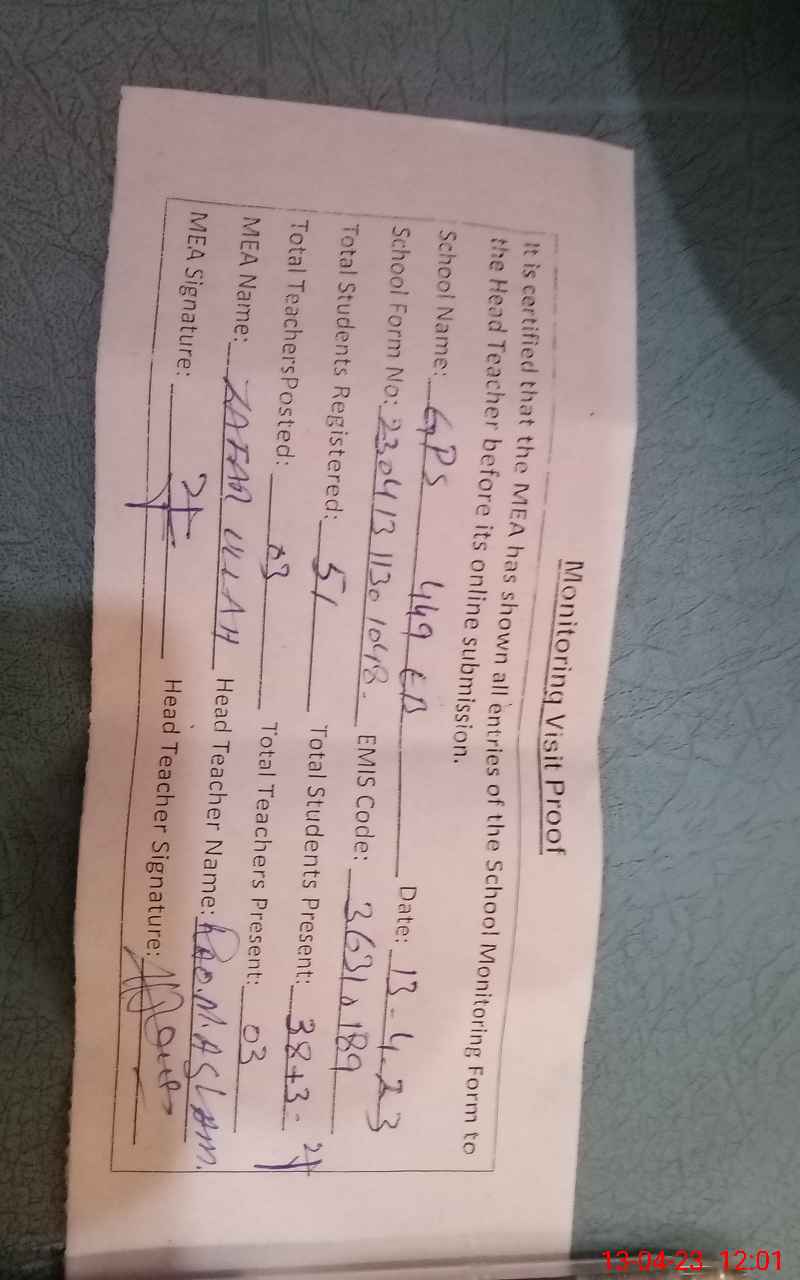 Monitoring Visit Proof
It is certified that the MEA has shown all entries of the School Monitoring Form to
the Head Teacher before its online submission.
School Name: GPS 449 EB Date: 13-4-23
School Form No: 230413 1130 1048- EMIS Code: 36310189
Total Students Registered: 51 Total Students Present: 38+3-
Total TeachersPosted: 03 Total Teachers Present: 03
MEA Name: ZAFAR ULLAH Head Teacher Name: RAO.M.ASLAM.
MEA Signature: Head Teacher Signature:
13-04-23 12:01